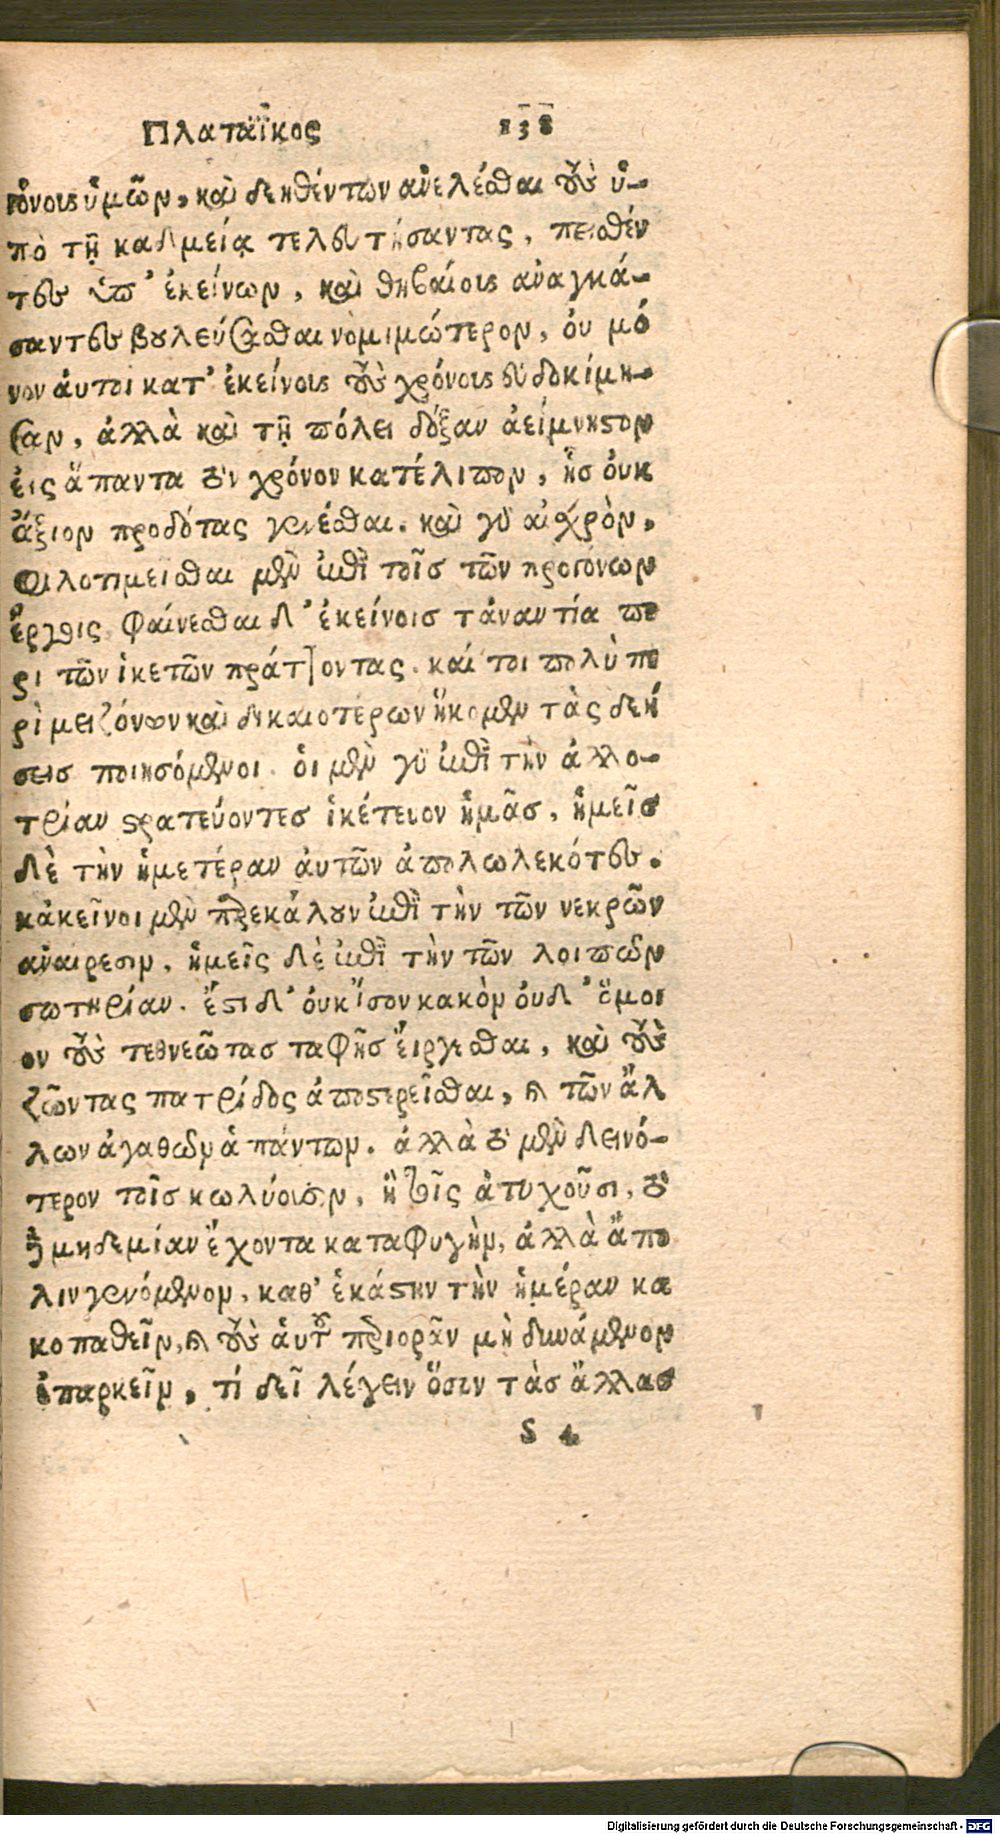 Πλαταϊκος 138
γόνοις ὑμῶν, καὶ δεηθέντων ἀνελέσθαι τοὺς ὑ-
πὸ τῇ καδμείᾳ τελευτήσαντας, πεισθέν
τες ὑπ' ἐκείνων, καὶ θηβαίοις ἀναγκά-
σαντες βουλεύσασθαι νομιμώτερον, ὀυ μό
νον ἀυτοι κατ' ἐκείνοις τοὺς χρόνοις εὐδοκίμη-
σαν, ἀλλὰ καὶ τῇ πόλει δόξαν ἀείμνηστον
ἐις ἅπαντα τὸν χρόνον κατέλιπον, ἧσ ὀυκ
ἄξιον προδότας γενέσθαι. καὶ γὰρ αἰσχρὸν,
φιλοτιμεισθαι μὲν ἐπὶ τοῖσ τῶν προγόνων
ἔργοις φαίνεσθαι δ' ἐκείνοισ τἀναντία πε
ρι τῶν ἱκετῶν πράττοντας. καί τοι πολὺ πε
ρὶ μειζόνων καὶ δικαιοτέρων ἥκομεν τὰς δεή
σεισ ποιησόμενοι. ὁι μὲν γὰρ ἐπὶ τὴν ἀλλο-
τρίαν στρατεύοντεσ ἱκέτευον ἡμᾶσ, ἡμεῖσ
δὲ τὴν ἡμετέραν ἀυτῶν ἀπολωλεκότες.
κἀκεῖνοι μὲν παρεκάλουν ἐπὶ τὴν τῶν νεκρῶν
ἀναιρεσιν, ἡμεῖς δὲ ἐπὶ τὴν τῶν λοιπῶν
σωτηρίαν. ἔστι δ' ὀυκ ἴσον κακὸν ὀυδ' ὅμοι
ον τοὺς τεθνεῶτασ ταφῆσ ἔιργεσθαι, καὶ τοὺς
ζῶντας πατρίδος ἀποστερεῖσθαι, καὶ τῶν ἄλ
λων ἀγαθῶν ἁπάντων. ἀλλὰ τὸ μὲν δεινό-
τερον τοῖσ κωλύουσιν, ἢ τοῖς ἀτυχοῦσι, τὸ
δὲ μηδεμίαν ἔχοντα καταφυγὴν, ἀλλὰ ἄπο
λιν γενόμενον, καθ' ἑκάστην τὴν ἡμέραν κα
κοπαθεῖν, καὶ τοὺς ἁυτοῦ περιορᾶν μὴ δυνάμενον
ἐπαρκεῖν, τί δεῖ λέγειν ὅσον τὰσ ἄλλασ
S 4
Digitalisierung gefördert durch die Deutsche Forschungsgemeinschaft - DFG